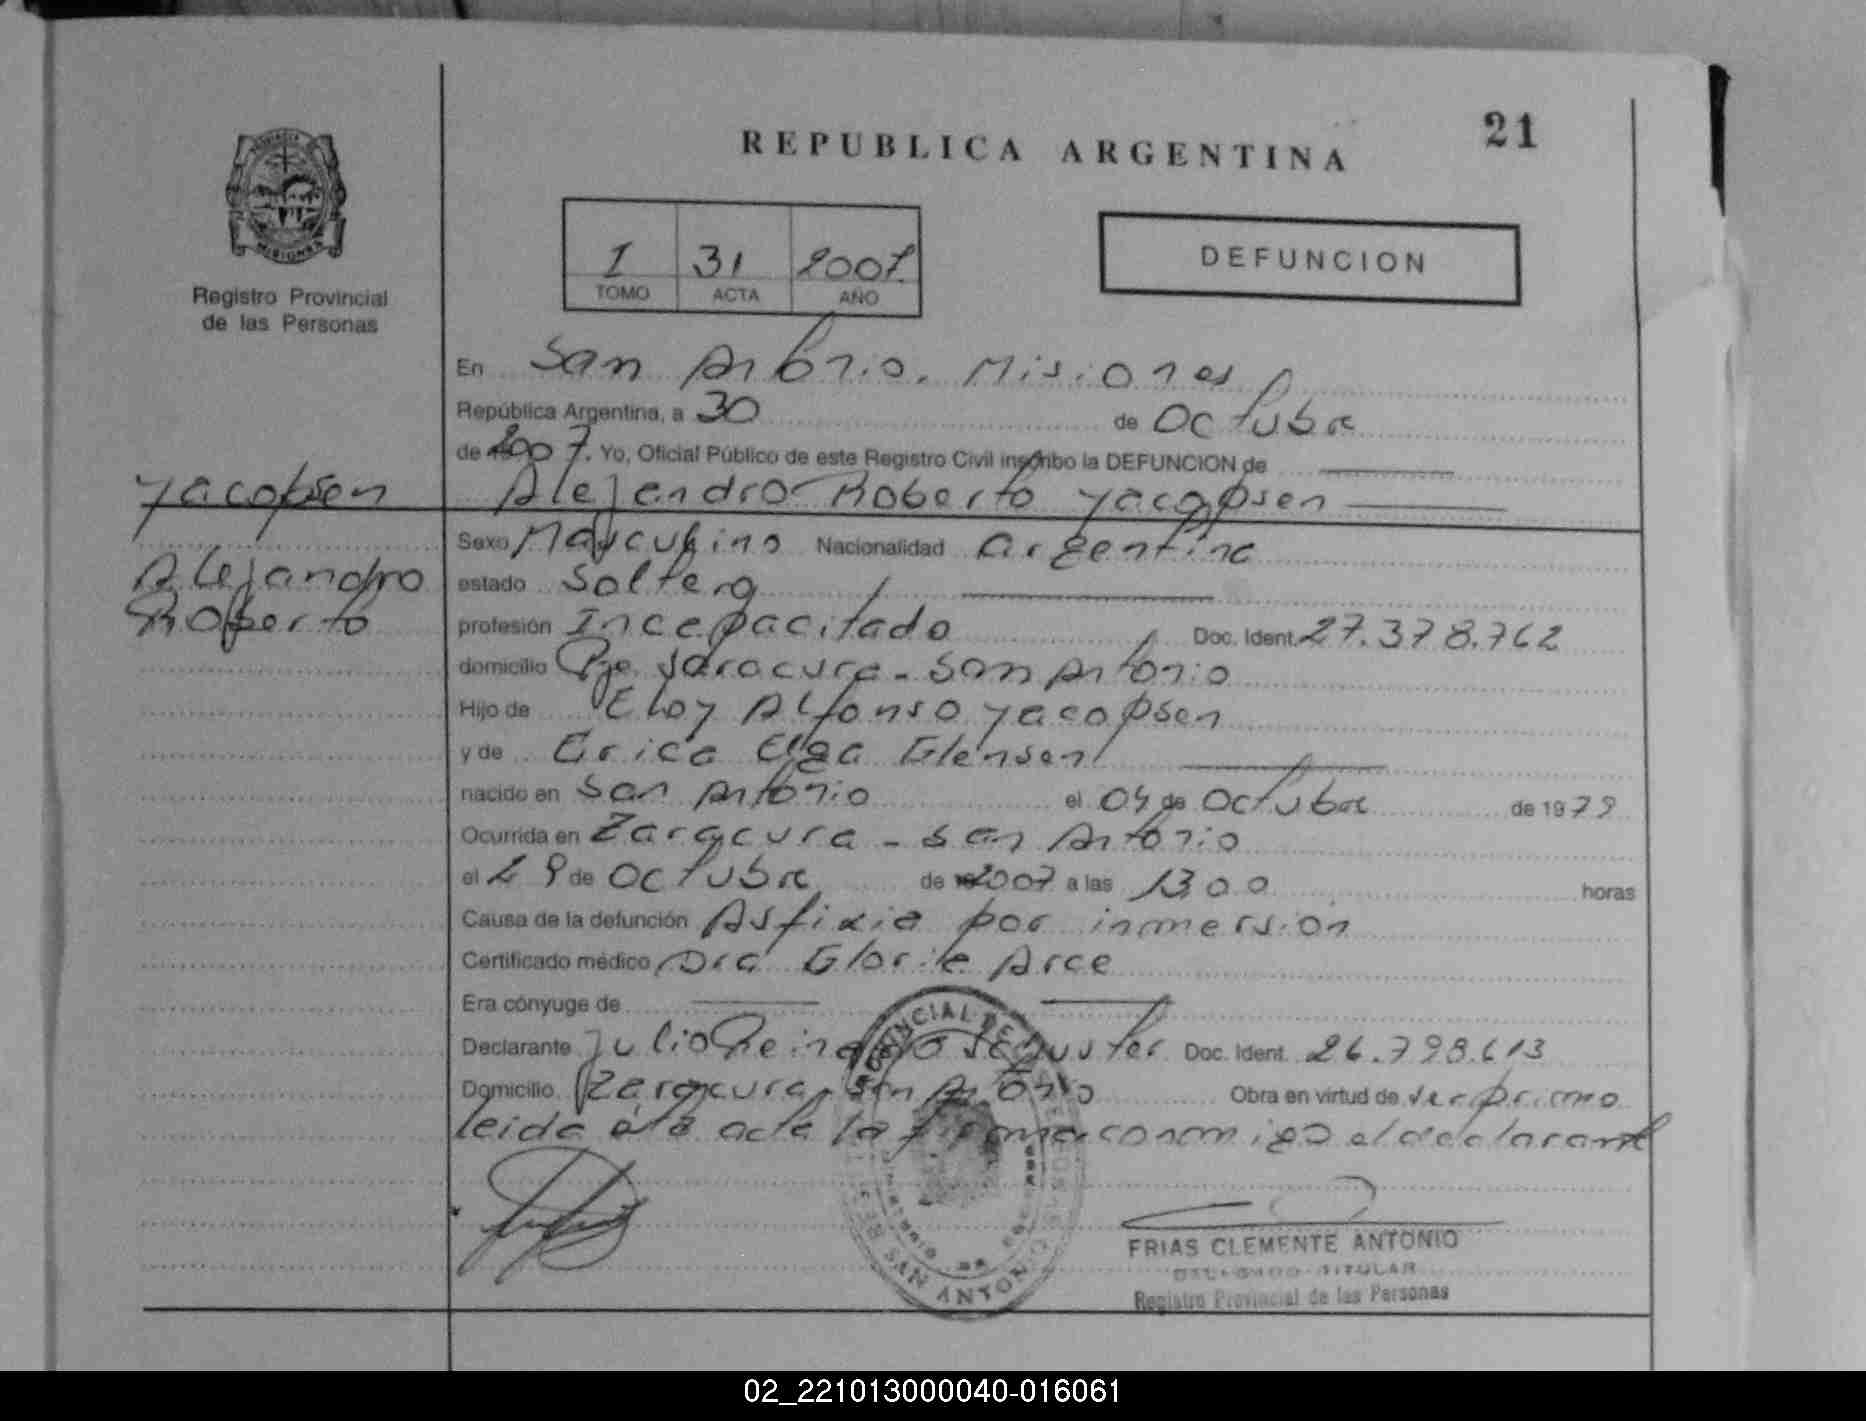 21
REPUBLICA ARGENTINA
DEFUNCION
I 31 2007
TOMO ACTA AÑO
PROVINCIA
MISIONES
Registro Provincial
de las Personas
En San Antonio. Misiones
República Argentina, a 30 de Octubre
de 2007. Yo, Oficial Público de este Registro Civil inscribo la DEFUNCION de
Alejandro Roberto Yacopsen
Yacopsen
Alejandro
Roberto
Sexo Masculino Nacionalidad Argentina
estado Soltero
profesión Incapacitado Doc. Ident. 27.378.762
domicilio Pje. Saracura - San Antonio
Hijo de Eloy Alfonso Yacopsen
y de Erica Elga Glensen
nacido en San Antonio el 04 de Octubre de 1979
Ocurrida en Zaracura - San Antonio
el 29 de Octubre de 2007 a las 1300 horas
Causa de la defunción Asfixia por inmersión
Certificado médico Dra Arce
Era cónyuge de
Declarante Julio Doc. Ident. 26.798.613
Domicilio Zaracura - San Antonio Obra en virtud de ser primo
leida el acta la firma conmigo el declarante
PROVINCIAL DE
SAN ANTONIO
FRIAS CLEMENTE ANTONIO
DELEGADO TITULAR
Registro Provincial de las Personas
02_221013000040-016061